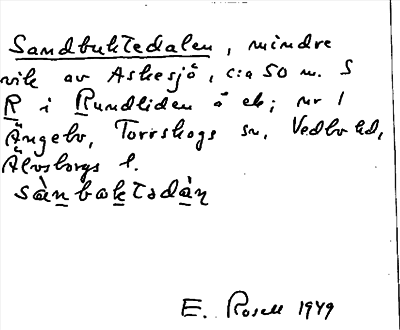 Sandbuktedalen, mindre
vik av Askesjö, c:a 50 m. S
R i Rundliden å ek; nr 1
Ängebo, Torrskogs sn, Vedbo hd,
Älvsborgs l.
sànbak̲tadàn̲
E. Rosell 1949